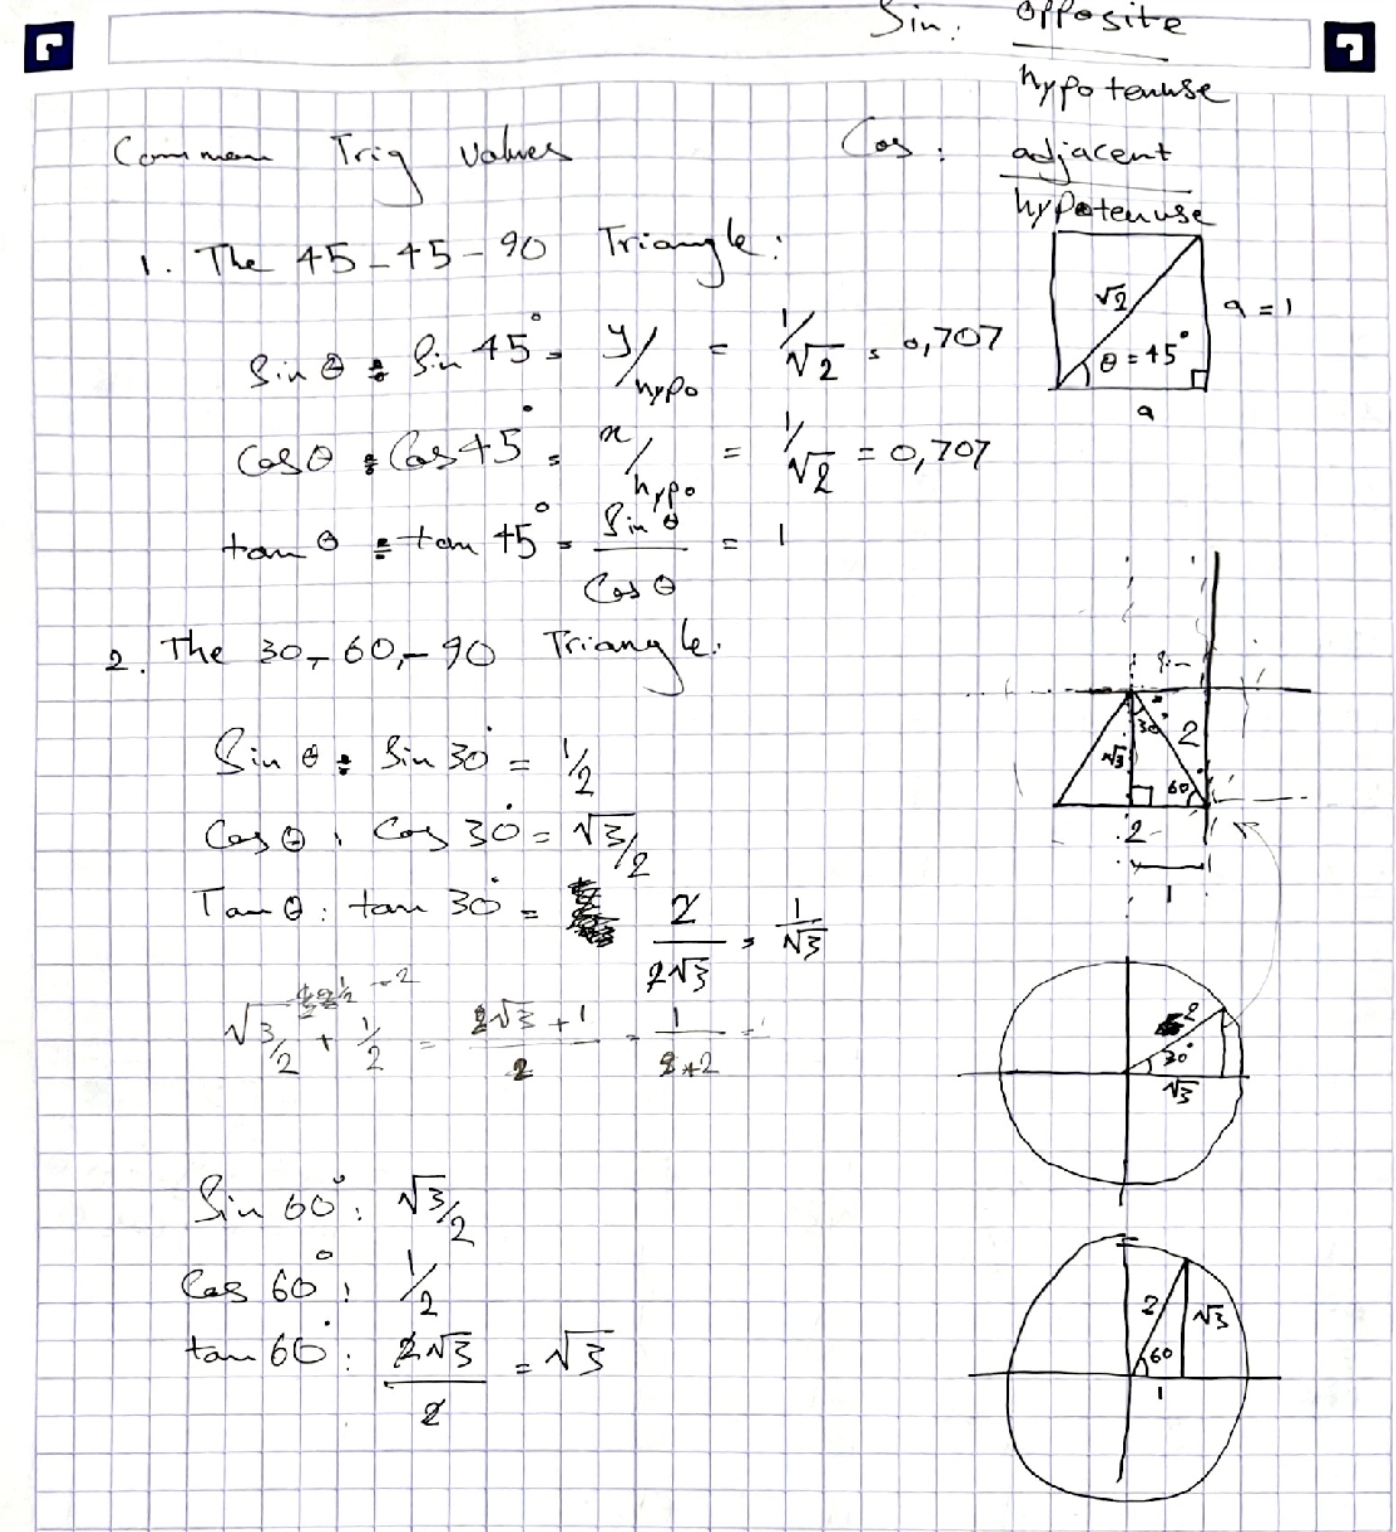 Sin: opposite / hypotenuse
Common Trig values
Cos: adjacent / hypotenuse
1. The 45-45-90 Triangle:
√2
a = 1
θ = 45°
a
Sin θ = Sin 45° = y/hypo = 1/√2 = 0,707
Cos θ = Cos 45° = x/hypo = 1/√2 = 0,707
tan θ = tan 45° = Sin θ / Cos θ = 1
2. The 30-60-90 Triangle:
30°
2
√3
60°
2
1
Sin θ = Sin 30° = 1/2
Cos θ : Cos 30° = √3/2
Tan θ : tan 30° = 2 / 2√3 = 1/√3
√3/2 + 1/2 = 2√3 + 1 / 2 = 1 / 2+2 =
2
30°
√3
Sin 60° : √3/2
Cos 60° : 1/2
tan 60° : 2√3 / 2 = √3
2
√3
60
1